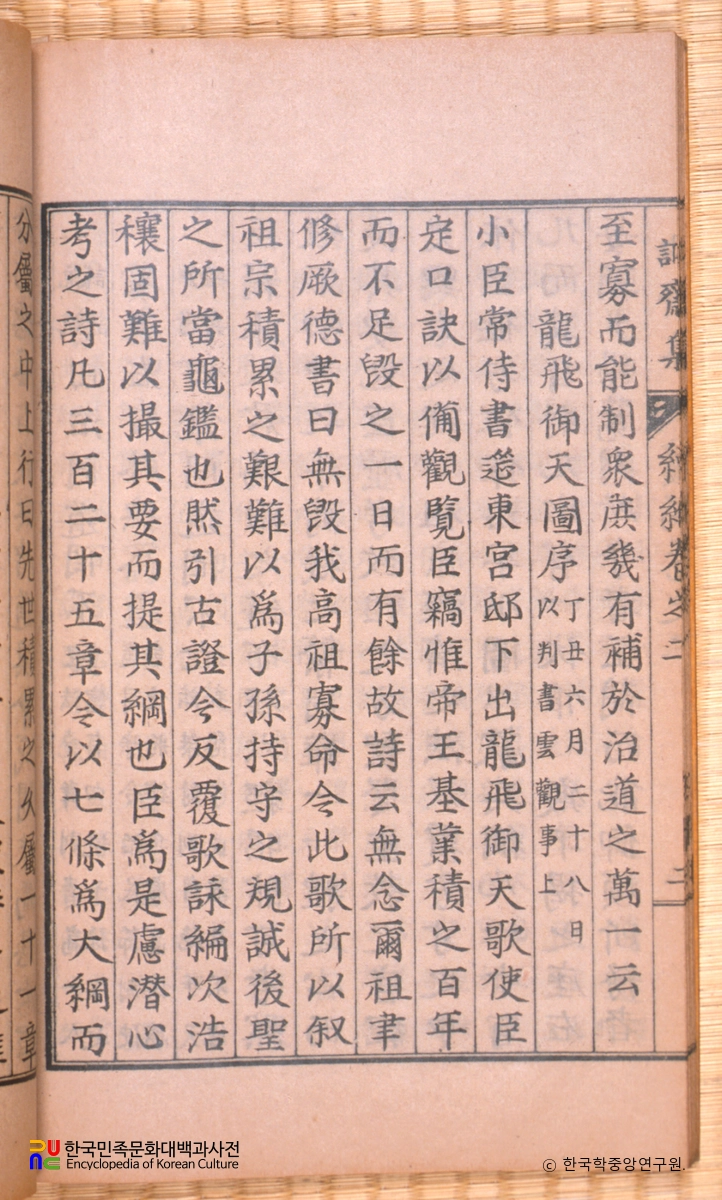 至寡而能制衆庶幾有補於治道之萬一云
龍飛御天圖序丁丑六月二十八日
以判書雲觀事上
小臣常侍書筵東宮邸下出龍飛御天歌使臣
定口訣以備觀覽臣竊惟帝王基業積之百年
而不足毁之一日而有餘故詩云無念爾祖聿
修厥德書曰無毁我高祖寡命今此歌所以叙
祖宗積累之艱難以爲子孫持守之規誠後聖
之所當龜鑑也然引古證今反覆歌詠編次浩
穰固難以撮其要而提其綱也臣爲是慮潜心
考之詩凡三百二十五章令以七條爲大綱而
分屬之中上行曰先世積累之久屬一十一章
齋集
卷之二
二
한국민족문화대백과사전
Encyclopedia of Korean Culture
ⓒ 한국학중앙연구원.